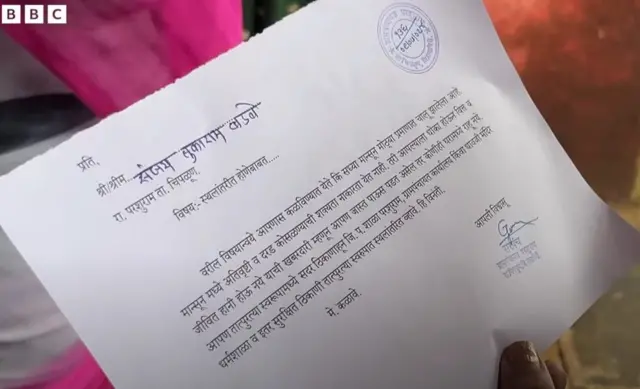 BBC
प्रति,
श्री/श्रीम.
रा. परशुराम ता. चिपळूण.
विषय:- स्थलांतरीत होणेबाबत.....
वरील विषयान्वये आपणास कळविण्यात येते कि सध्या मान्सून मोठ्या प्रमाणात चालू झालेला आहे.
मान्सून मध्ये अतिवृष्टी व दरड कोसळण्याची शक्यता नाकारता येत नाही. तरी आपल्याला धोका होऊन वित्त व
जीवित हानी होऊ नये याची खबरदारी म्हणून आपण जास्त पाऊस पडत असेल तर कोणीही घरामध्ये राहू नये.
आपण तात्पुरत्या स्वरूपामध्ये सदर ठिकाणाहून जि. प. शाळा परशुराम, ग्रामपंचायत कार्यालय किंवा मंदिर
धर्मशाळा व इतर सुरक्षित ठिकाणी तात्पुरत्या स्वरूपात स्थलांतरीत व्हावे. हि विनंती.
मे. कळावे.
आपली विश्वासू